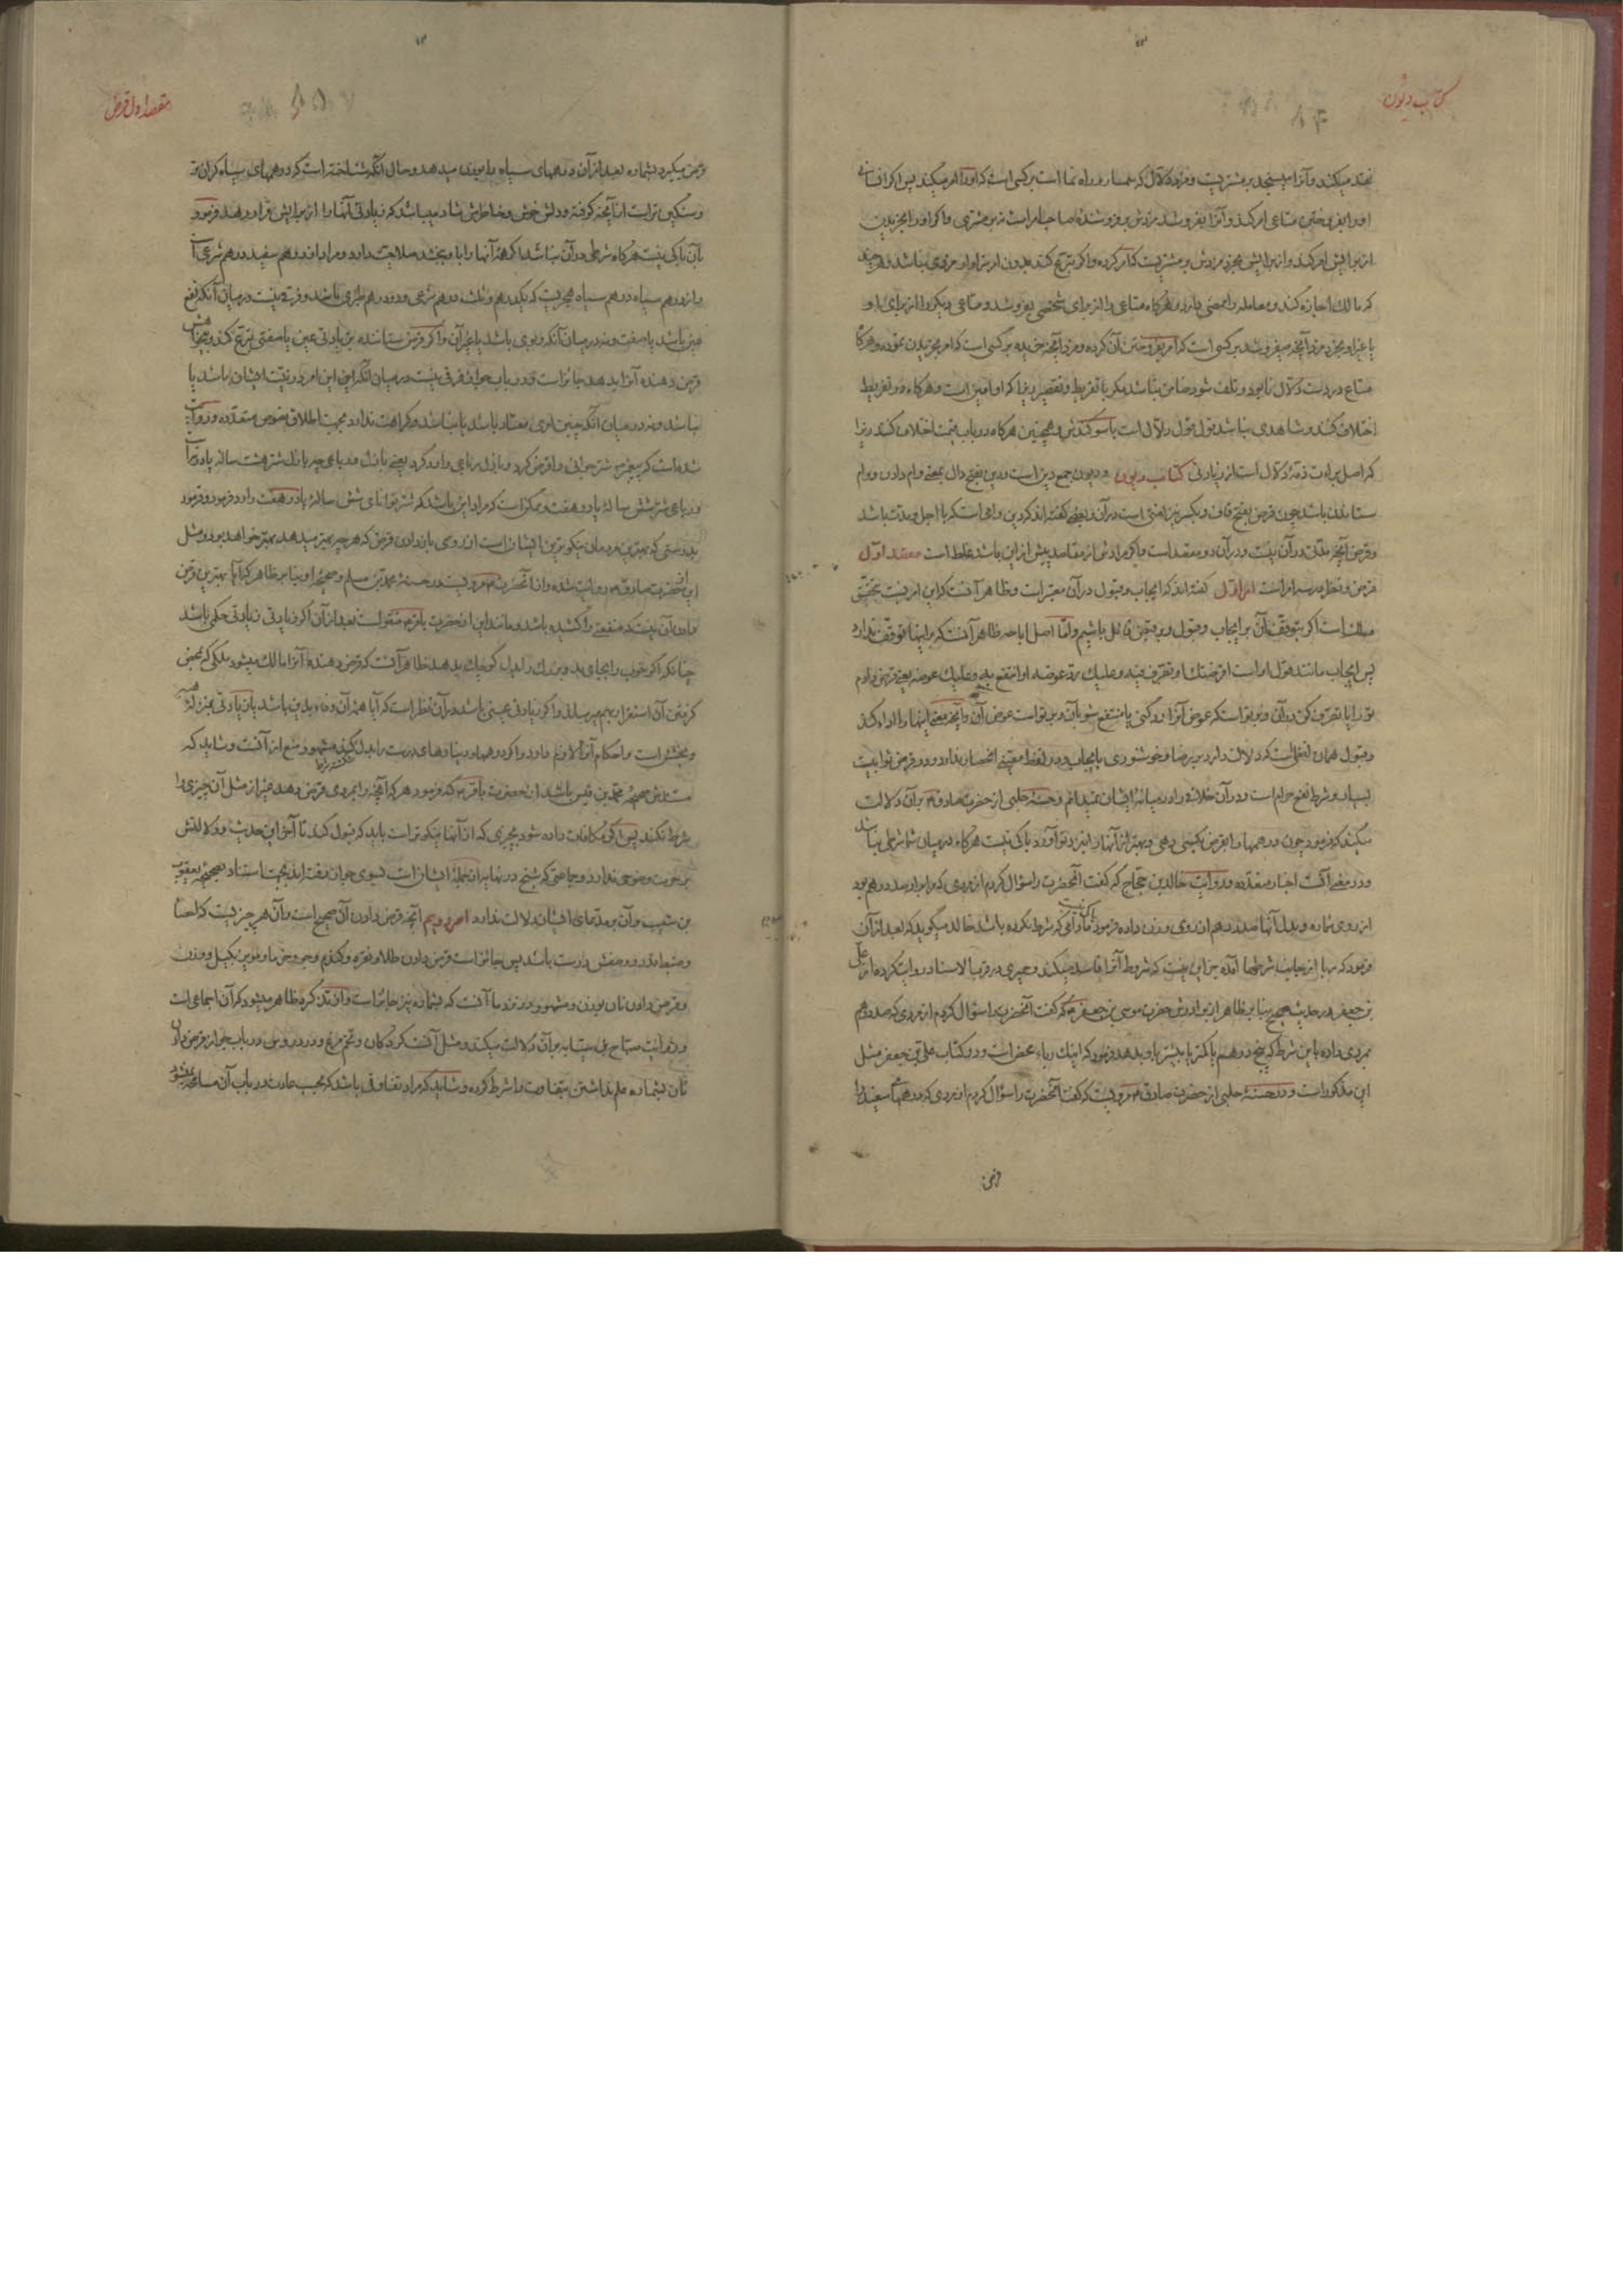 کتاب دیون
نقد میکند و آنرا میسنجد بر مشتریست و مزد دلال که سمسار و راه نما است بر کسی است که او را امر میکند پس اگر انسانی
او را بفروختن متاعی امر کند و آنرا بفروشد مزدش بر فروشندهٔ صاحب امر است نه بر مشتری و اگر او را بخریدن
از برایش امر کند و از برایش بخرد مزدش بر مشتریست که امر کرده و اگر تبرّع کند بدون امر نزا و او مزدی نباشد و هرچند
که مالک اجازه کند و معامله را ممضی دارد و هرگاه متاعی را از برای شخصی بفروشد و متاعی دیگر را از برای او
یا غیر او بخرد مزد آنچه میفروشد بر کسی است که امر بفروختن آن کرده و مزد آنچه خریده بر کسی است که امر بخریدن نموده و هرگاه
متاع در دست دلال نابود و تلف شود ضامن نباشد مگر با تفریط و تقصیر زیرا که او امین است و هرگاه در تفریط
اختلاف کنند و شاهدی نباشد قول قول دلال است با سوگندش و همچنین هرگاه در باب قیمت اختلاف کنند زیرا
که اصل برائت ذمهٔ دلال است از زیادتی کتاب دیون و دیون جمع دین است و دین بفتح دال بمعنی وام دادن و وام
ستاندن باشد چون قرض بفتح قاف و بکسر نیز لغتی است در آن و بعضی گفته‌اند که دین وامی است که با اجل و مدّت باشد
و قرض آنچه مدّتی در آن نیست و در آن دو مقصد است و اگر مرادش از مقاصد پیش از این باشد غلط است مقصد اوّل
قرض و نظر در سه امر است امر اوّل گفته‌اند که ایجاب و قبول در آن معتبر است و ظاهر آنست که این امر نیست تحقّق
ملک است اگر بتوقّف آن بر ایجاب و قبول و بر قبض قائل باشیم و امّا اصل اباحه ظاهر آنست که بر اینها توقّف ندارد
پس ایجاب مانند قول او است اقرضتک او تصرّف فیه و علیک ردّ عوضه او انتفع به و علیک عوضه یعنی قرض دادم
تو را یا تصرّف کن در آن و بر تو است که عوض آنرا رد کنی یا منتفع شو بآن و بر تو است عوض آن و آنچه معنی اینها را ادا کند
و قبول همان لفظی است که دلالت دارد بر رضا و خوشنودی بایجاب و در لفظ معیّنی انحصار ندارد و در قرض ثوابیست
بسیار و شرط نفع حرام است و در آن خلافی را در میانهٔ ایشان نمیدانم و حسنهٔ حلبی از حضرت صادق ع بر آن دلالت
میکند که فرمود چون درهمها را بقرض بکسی دهی و بهتر از آنها را نیز تو آورد باکی نیست هرگاه در میان شما شرطی نباشد
و در معنی آنست اخبار متعدّده و روایت خالد بن حجّاج که گفت آنحضرت را سؤال کردم از مردی که مرا بر او صد درهم بود
از روی شماره و بدل آنها صد درهم از روی وزن داده فرمود باکی نیست مادامی که شرط نکرده باشد خالد میگوید که بعد از آن
فرمود که ربا از جانب شرطها آمده جز این نیست که شروط آنرا فاسد میکند و حمیری در قرب الاسناد روایت کرده از علی
بن جعفر در حدیث صحیح بنابر ظاهر از برادرش حضرت موسی بن جعفر ع که گفت آنحضرت را سؤال کردم از مردی که صد درهم
بمردی داده باین شرط که پنج درهم یا کمتر یا بیشتر باو بدهد فرمود که اینک رباء محض است و در کتاب علی بن جعفر مثل
این مذکور است و در حسنهٔ حلبی از حضرت صادق ع مرویست که گفت آنحضرت را سؤال کردم از مردی که درهمهای سفید را
قرض
مقصد اول قرض
قرض میگیرد بشماره بعد از آن درهمهای سیاه را بوزن میدهد و حال آنکه شناخته است که درهمهای سیاه گران‌تر
و سنگین‌تر است از آنچه گرفته و دلش خوش و خاطرش شاد میباشد که زیادتی آنها را از برایش قرار دهد فرمود
بآن باکی نیست هرگاه شرطی در آن نباشد اگر همهٔ آنها را باو بخشد صلاحیت دارد و مراد از درهم سفید درهم شرعی است
و از درهم سیاه درهم سیاه هجریست که یکدرهم و ثلث درهم شرعی و دو درهم طبری باشد و فرقی نیست در میان آنکه نفع
عین باشد یا صفت و نه در میان آنکه ربوی باشد یا غیر آن و اگر قرض ستاننده بزیادتی عین یا صفتی تبرّع کند و بهتر از
قرض دهنده آنرا بدهد جائز است و در باب جواز فرقی نیست در میان آنکه این امر در نیّت ایشان باشد یا
نباشد و نه در میان آنکه چنین امری معتاد باشد یا نباشد و کراهت ندارد بجهت اطلاق نصوص متعدّده و روایت
شده است که پیغمبر ص شتر جوانی را قرض کرد و بازل رباعی را رد کرد یعنی بازل و رباعی چه بازل شتر هشت ساله یا در نه
و رباعی شتر شش ساله یا در هفت و ممکن است که مراد این باشد که شتر توانای شش ساله یا در هفت را رد فرمود و فرمود
بدرستی که بهترین مردمان نیکوترین ایشان است از روی باز دادن قرض که هر چه بهتر میدهد بهتر خواهد بود و مثل
این از حضرت صادق ع روایت شده و از آنحضرت ع مرویست در حسنهٔ محمّد بن مسلم و صحیحهٔ او بنابر ظاهر که آیا بهترین قرض
دادن آن نیست که منفعتی را کشیده باشد و مانند این از حضرت باقر ع منقول است بعد از آن اگر زیادتی زیادتی حکمی باشد
چنانکه اگر خوب را بجای بد و بزرگ را بدل کوچک بدهد ظاهر آنست که قرض دهنده آنرا مالک میشود بملکی که بمحض
گرفتن آن استقرار بهم میرساند و اگر زیادتی عینی باشد در آن نظر است که آیا همهٔ آن وفاء بدین باشد یا زیادتی بمنزلهٔ هبه
و بخشش است و احکام آنرا لازم دارد و اگر درهمها و دینارهای درست را بدل شکسته‌ها کند مشهور منع از آنست و شاید که
مستندش صحیحهٔ محمّد بن قیس باشد از حضرت باقر ع که فرمود هر که آنچه را بمردی قرض دهد غیر از مثل آن چیزی را
شرط نکند پس اگر مکافات داده شود بچیزی که از آنها نیکوتر است باید که قبول کند تا آخر این حدیث و دلالتش
بر حرمت وضوحی ندارد و جماعتی که شیخ در نهایه از جملهٔ ایشان است بسوی جواز رفته‌اند بجهت استناد بصحیحهٔ یعقوب
بن شعیب و آن بر مدّعای ایشان دلالت ندارد امر دویم آنچه قرض دادن آن صحیح است و آن هر چیزیست که احصا
و ضبط قدر و وصفش درست باشد پس جائز است قرض دادن طلا و نقره و گندم و جو و خرما و مویز بکیل و وزن
و قرض دادن نان بوزن و مشهور در نزد ما آنست که بشماره نیز جائز است و از تذکره ظاهر میشود که آن اجماعی است
و روایت صباح بن سیّابه بر آن دلالت میکند و مثل آنست گردکان و تخم مرغ و در دروس در باب جواز قرض دادن
نان بشماره علم نداشتن بتفاوت را شرط کرده و شاید که مراد تفاوتی باشد که بحسب عادت در باب آن مسامحه نمیشود